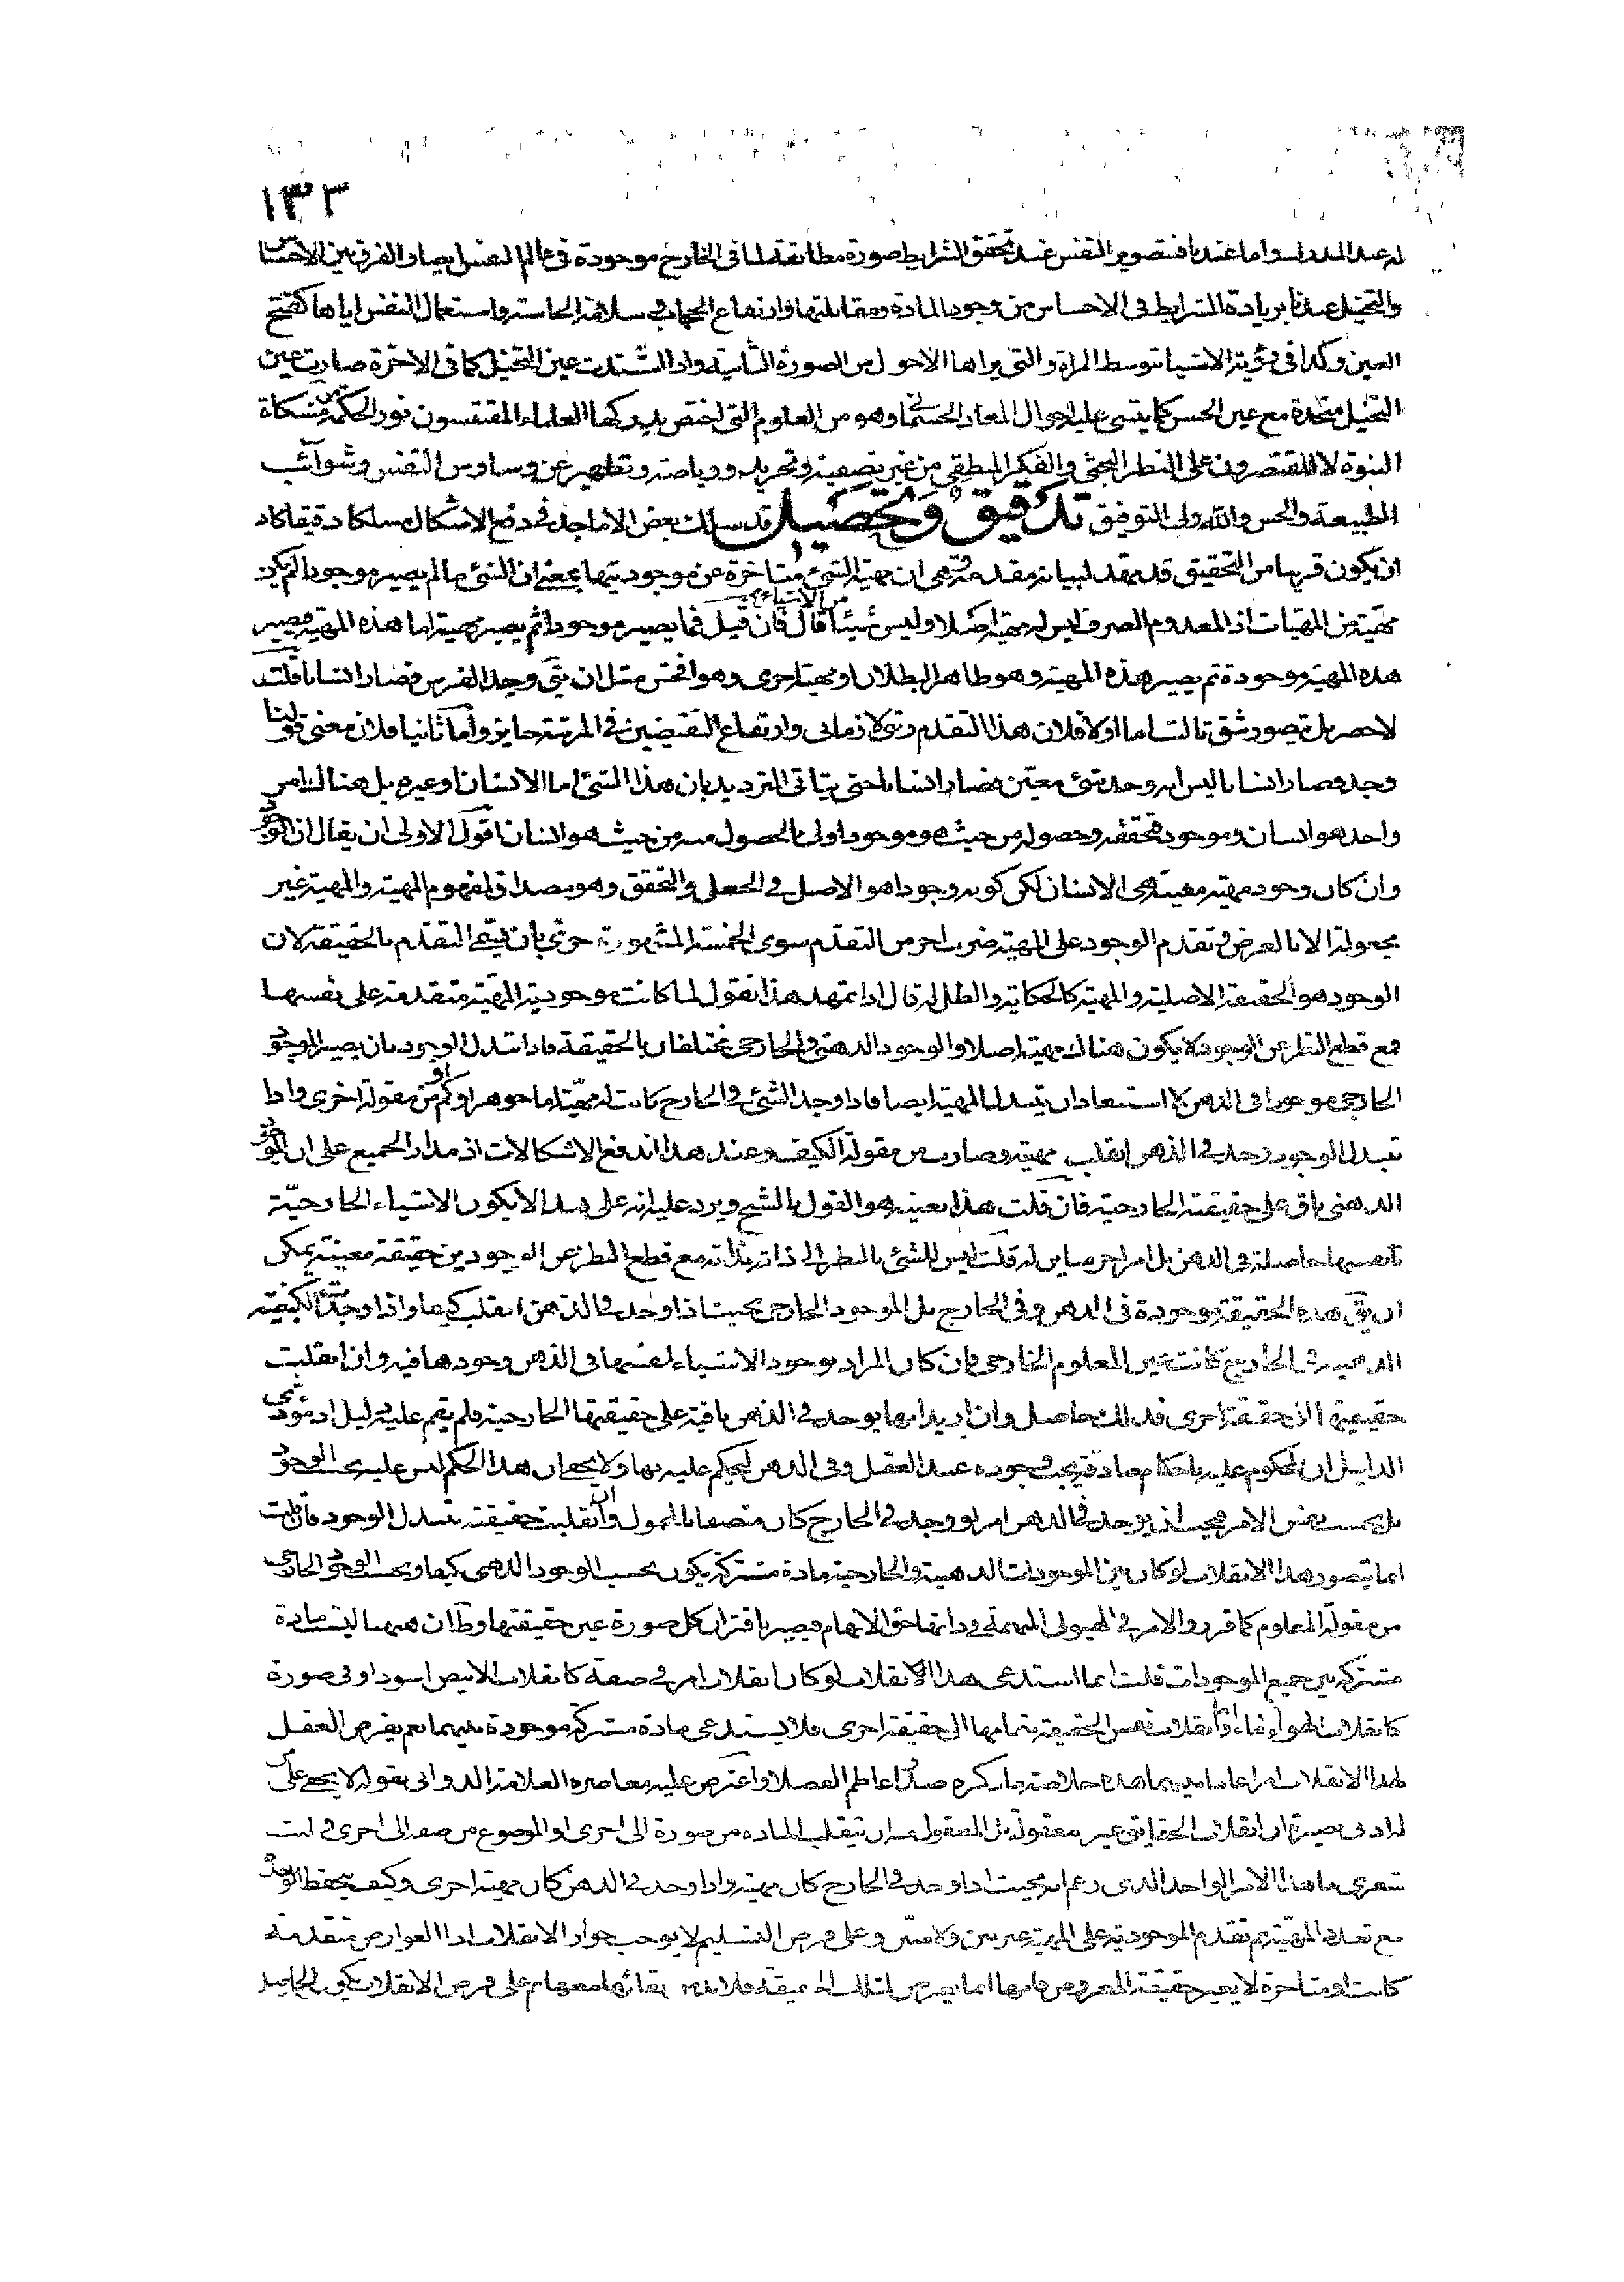 ١٣٣
واما عندنا فتصوير النفس عند تحقق الشرايط صورة مطابقة لما فى الخارج موجودة فى عالم النفس ايضا والفرق بين الاحساس
والتخيل عندنا بزيادة الشرايط فى الاحساس من وجود المادة ومقابلتها وارتفاع الحجاب فى سلامة الحاسة واستعمال النفس اياها كفتح
العين وكذا فى رؤية الاشياء بتوسط المراة والتى يراها الاحول من الصورة الثانية واذا اشتدت عين التخيل كما فى الاخرة صارت عين
التخيل متحدة مع عين الحس كما يبتنى عليه احوال المعاد الجسمانى وهو من العلوم التى اختص بدركها العلماء المقتبسون نور الحكمة من مشكاة
النبوة لا المقتصرون على النظر البحثى والفكر المنطقى من غير تصفية وتجريد ورياضة وتطهير عن وساوس النفس وشوائب
الطبيعة والحس والله ولى التوفيق تدقيق وتحصيل قد سلك بعض الاماجد فى دفع الاشكال مسلكا دقيقا كاد
ان يكون قريبا من التحقيق قد مهد لبيانه مقدمة هى ان مهية الشئ متاخرة عن موجوديتها بمعنى ان الشئ ما لم يصير موجودا لم يكن
مهية من المهيات اذ المعدوم الصرف ليس له مهية اصلا وليس شيئا من الاشياء قال فان قيل فما يصير موجودا ثم يصير مهية اما هذه المهية فيصير
هذه المهية موجودة ثم يصير هذه المهية وهو ظاهر البطلان او مهية اخرى وهو افحش مثل ان يق وجد الفرس فصار انسانا قلت
لا حصر بل تصور شق ثالث اما اولا فلان هذا التقدم رتبى لا زمانى وارتفاع النقيضين فى المرتبة جايز واما ثانيا فلان معنى قولنا
وجد فصار انسانا ليس انه وجد شئ معين فصار انسانا حتى يتاتى الترديد بان هذا الشئ اما الانسان او غيره بل هناك امر
واحد هو انسان وموجود فتحققه وحصوله من حيث هو موجود اولى بالحصول منه من حيث هو انسان اقول الاولى ان يقال ان الوجود
وان كان وجود مهية معينة هى الانسان لكن كونه وجودا هو الاصل فى الجعل والتحقق وهو مصداق لمفهوم المهية والمهية غير
مجعولة الا بالعرض فتقدم الوجود على المهية ضرب اخر من التقدم سوى الخمسة المشهورة حرى بان يسمى التقدم بالحقيقة لان
الوجود هو الحقيقة الاصلية والمهية كالحكاية والظل له قال اذا تمهد هذا نقول لما كانت موجودية المهية متقدمة على نفسها
فمع قطع النظر عن الوجود لا يكون هناك مهية اصلا والوجود الذهنى والخارجى مختلفان بالحقيقة فاذا تبدل الوجود بان يصير الموجود
الخارجى موجودا فى الذهن لا استبعاد ان يتبدل المهية ايضا فاذا وجد الشئ فى الخارج كانت له مهية اما جوهر او كم او من مقولة اخرى واذا
تبدل الوجود ووجد فى الذهن انقلب مهيته وصارت من مقولة الكيف وعند هذا اندفع الاشكالات اذ مدار الجميع على ان الموجود
الذهنى باق على حقيقته الخارجية فان قلت هذا بعينه هو القول بالشبح ويرد عليه انه على هذا لا يكون الاشياء الخارجية
بانفسها حاصلة فى الذهن بل امر اخر مباين له قلت ليس للشئ بالنظر الى ذاته بذاته مع قطع النظر عن الوجودين حقيقة معينة يمكن
ان يق هذه الحقيقة موجودة فى الذهن وفى الخارج بل الموجود الخارجى بحيث اذا وجد فى الذهن انقلب كيفا واذا وجدت الكيفية
الذهنية فى الخارج كانت عين المعلوم الخارجى فان كان المراد بوجود الاشياء انفسها فى الذهن وجودها فيه وان انقلبت
حقيقتها الى حقيقة اخرى فذلك حاصل وان اريد انها يوجد فى الذهن باقية على حقيقتها الخارجية فلم يقم عليه دليل اذ مؤدى
الدليل ان المحكوم عليه باحكام صادقة يجب وجوده عند العقل وفى الذهن ليحكم عليه بها ولا يخفى ان هذا الحكم ليس عليه بحسب الوجود
بل بحسب نفس الامر فيجب ان يوجد فى الذهن امر لو وجد فى الخارج كان متصفا بالمحمول وان انقلبت حقيقته بتبدل الوجود فان قلت
انما يتصور هذا الانقلاب لو كان بين الموجودات الذهنية والخارجية مادة مشتركة يكون بحسب الوجود الذهنى كيفا وبحسب الوجود الخارجى
من مقولة المعلوم كما قرروا الامر فى الهيولى المبهمة فى ذاتها حق الابهام فيصير باقتران كل صورة عين حقيقتها وظ ان ههنا ليست مادة
مشتركة بين جميع الموجودات قلت انما استدعى هذا الانقلاب لو كان انقلاب امر فى صفة كانقلاب الابيض اسود او فى صورة
كانقلاب الهواء ماء واما انقلاب نفس الحقيقة بتمامها الى حقيقة اخرى فلا يستدعى مادة مشتركة موجودة بينهما نعم يفرض العقل
لهذا الانقلاب امرا عاما بينهما هذه خلاصة ما ذكره صار اعاظم الفضلا واعترض عليه معاصره العلامة الدوانى بقوله لا يخفى على
من له ادنى بصيرة ان انقلاب الحقايق غير معقول بل المعقول منه ان تنقلب المادة من صورة الى اخرى او الموضوع من صفة الى اخرى فليت
شعرى ما هذا الامر الواحد الذى زعم انه بحيث اذا وجد فى الخارج كان مهية واذا وجد فى الذهن كان مهية اخرى وكيف ينحفظ الوحدة
مع تعدد المهية ثم تقدم الموجودية على المهية غير بين ولا مبين وعلى فرض التسليم لا يوجب جواز الانقلاب اذ العوارض متقدمة
كانت او متاخرة لا يغير حقيقة المعروض فانها انما يعرض لتلك الحقيقة فلابد من بقائها معها ثم على فرض الانقلاب يكون الحاصل